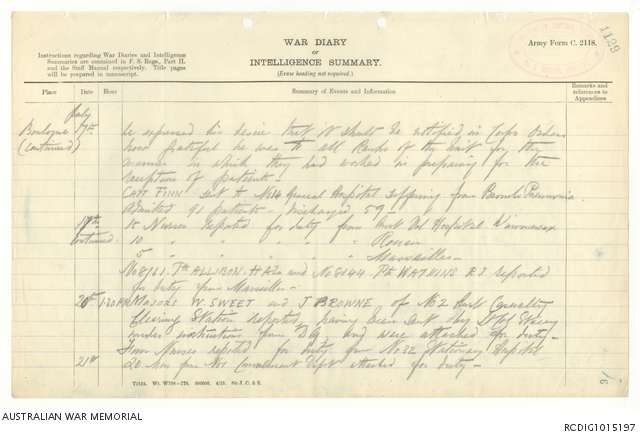 WAR DIARY
or
INTELLIGENCE SUMMARY.
(Erase heading not required.)
Instructions regarding War Diaries and Intelligence
Summaries are contained in F. S. Regs., Part II.
and the Staff Manual respectively. Title pages
will be prepared in manuscript.
Army Form C. 2118.
1129
Place Date Hour Summary of Events and Information Remarks and references to Appendices
July
Boulogne 19th he expressed his desire that it should be notified in Corps Orders
(continued) how grateful he was to all Ranks of the Unit for the
manner in which they had worked in preparing for the
reception of patients.
CAPT FINN sent to No 14 General Hospital suffering from Broncho Pneumonia.
Admitted 91 patients - discharged 59 -
19th 15 Nurses reported for duty from Aust Vol Hospital Wimereux
continued 10 " " " " " " Rouen
5 " " " " " " Marseilles -
Pte ALLISON. H A and No 8244 Pte WATKINS reported
for duty from Marseilles -
20th 1.30 PM MAJORS W. SWEET and J BROWNE, of No 2 Aust Casualty
Clearing Station reported, having been sent by Lt Col
under instructions from and were attached for duty -
Four Nurses reported for duty from No 32 Stationary Hospital
21st 20 men from No 1 Convalescent Depot attached for duty -
16
AUSTRALIAN WAR MEMORIAL
RCDIG1015197